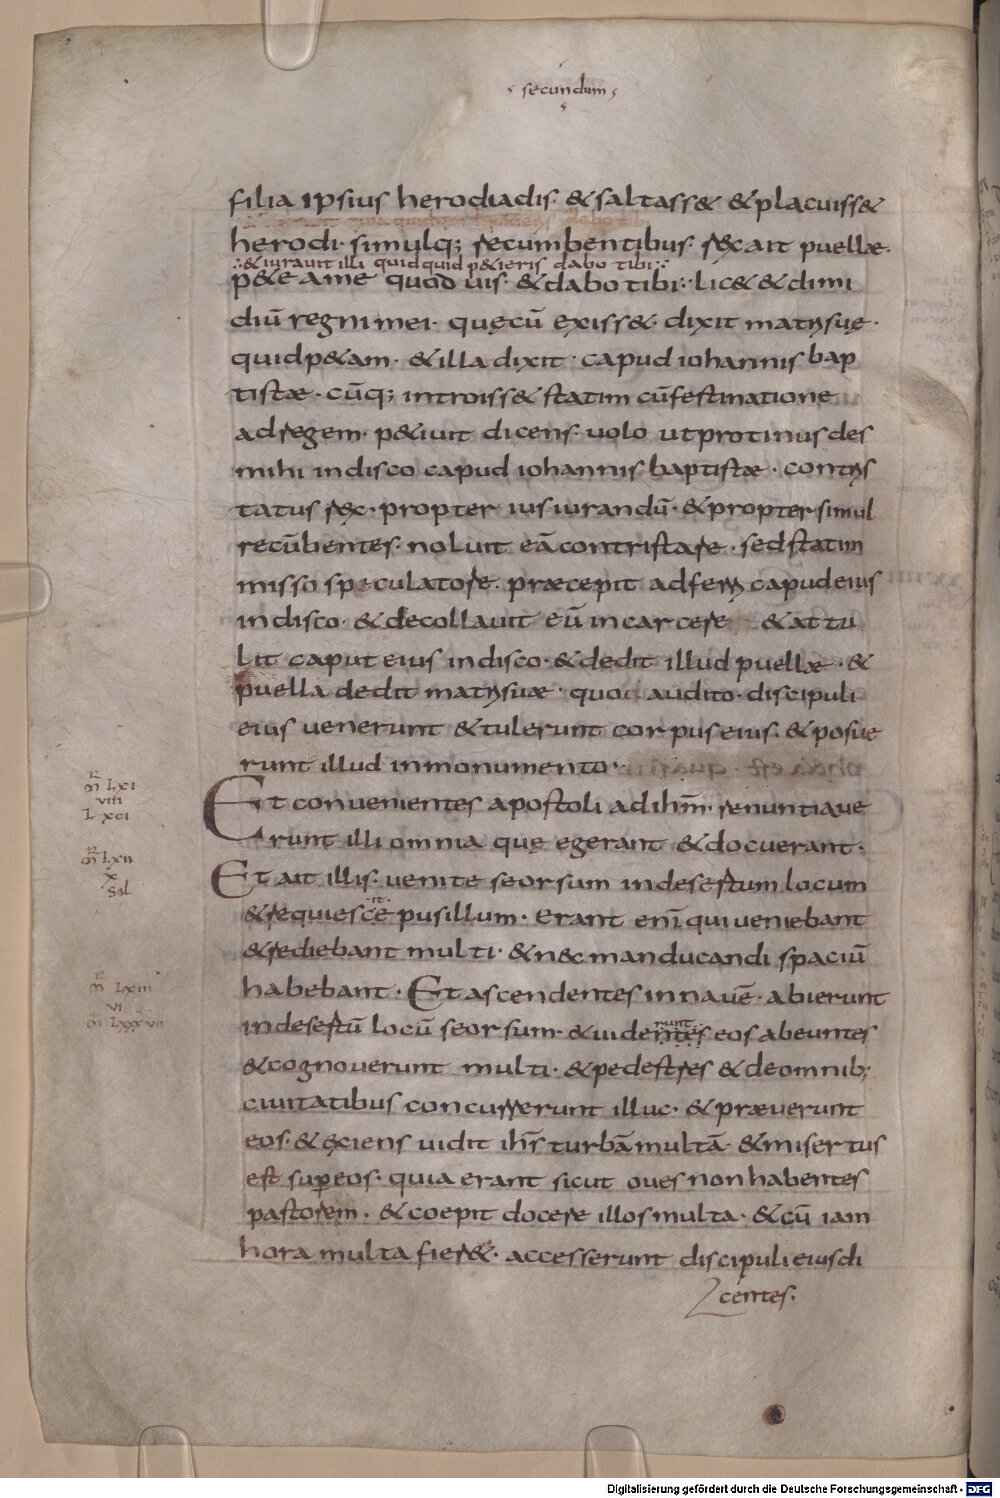 secundum
filia ipsius herodiadis· & saltass& & placuiss&
herodi· simulq; recumbentibus· rex ait puellæ·
& iurauit illi quidquid p&ieris dabo tibi
p&e ame quod uis· & dabo tibi· lic& & dimi
diū regni mei· quęcū exiss&· dixit matri suę·
quid p&am· & illa dixit· capud iohannis bap
tistæ· cūq; introiss& statim cū festinatione
ad regem· p&iuit dicens· uolo ut protinus des
mihi in disco capud iohannis baptistæ· contris
tatus rex· propter ius iurandū· & propter simul
recūbentes· noluit eā contristare· sed statim
misso speculatore· præcepit adferri capud eius
in disco· & decollauit eū in carcere & attu
lit caput eius in disco· & dedit illud puellæ· &
puella dedit matri suæ· quo audito· discipuli
eius uenerunt & tulerunt corpus eius· & posue
runt illud in monumento·
Et conuenientes apostoli ad ihm̄· renuntiaue
runt illi omnia quę egerant & docuerant·
Et ait illis· uenite seorsum in desertum locum
& requiescite pusillum· Erant eni̅ qui ueniebant
& rediebant multi· & nec manducandi spaciū
habebant· Et ascendentes in nauē· abierunt
in desertū locū seorsum· & uidentes eos abeuntes
runt
& cognouerunt multi· & pedestres & de omnib;
ciuitatibus concurrerunt illuc· & præuerunt
eos· & exiens uidit ihs̄ turbā multā· & misertus
est super eos· quia erant sicut oues non habentes
pastorem· & coepit docere illos multa· & cū iam
hora multa fier&· accesserunt discipuli eius di
centes·
R
m̄ LXI
viiii
L xci
R
m̄ LXII
x
sol
R
m̄ LXIII
vi
m̄ LXXXVII
Digitalisierung gefördert durch die Deutsche Forschungsgemeinschaft - DFG